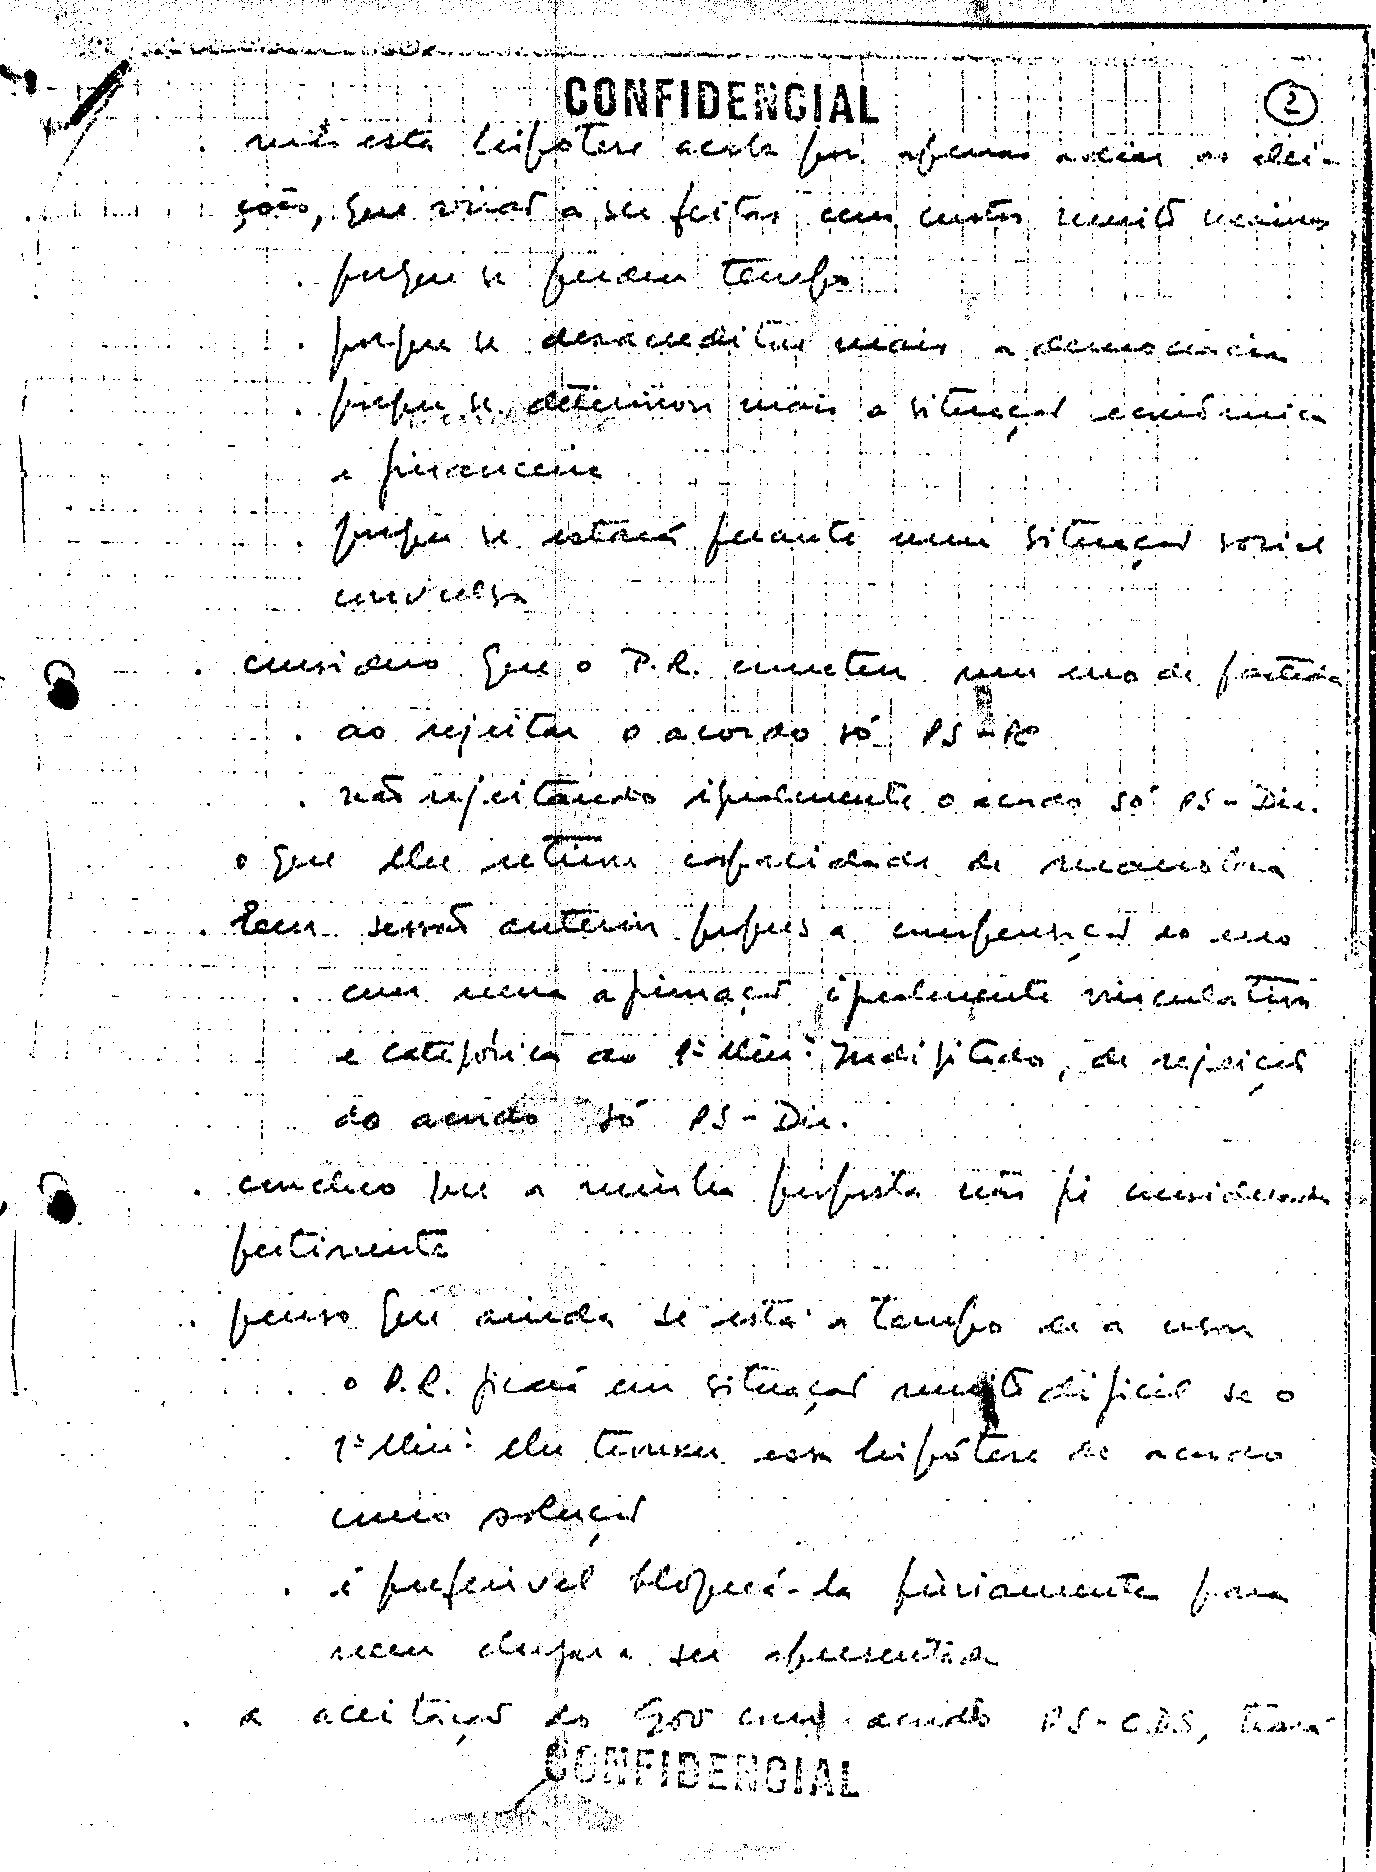 CONFIDENCIAL
2
. esta hipótese acaba por apenas adiar as elei-
ções, que virão a ser feitas com custos muito maiores
. porque se perdeu tempo
. porque se desacreditou mais a democracia
. porque se deteriorou mais a situação económica
e financeira
. porque se estará perante uma situação social
convulsa
. considero que o P.R. cometeu um erro de partida
. ao rejeitar o acordo só PS-PC
. não rejeitando igualmente o acordo só PS-Dir.
o que lhe retirou capacidade de manobra
. Em sessão anterior propus a compensação do erro
. com uma afirmação igualmente vinculativa
e categórica do 1º Min: Indigitado, de rejeição
do acordo só PS-Dir.
. concluo que a minha proposta não foi considerada
pertinente
. penso que ainda se está a tempo de a usar
. o P.R. ficará em situação muito difícil se o
1º Min: lhe trouxer essa hipótese de acordo
como solução
. é preferível bloqueá-la previamente para
nem chegar a ser apresentada
. a aceitação do Gov com acordo PS-CDS, trará
CONFIDENCIAL